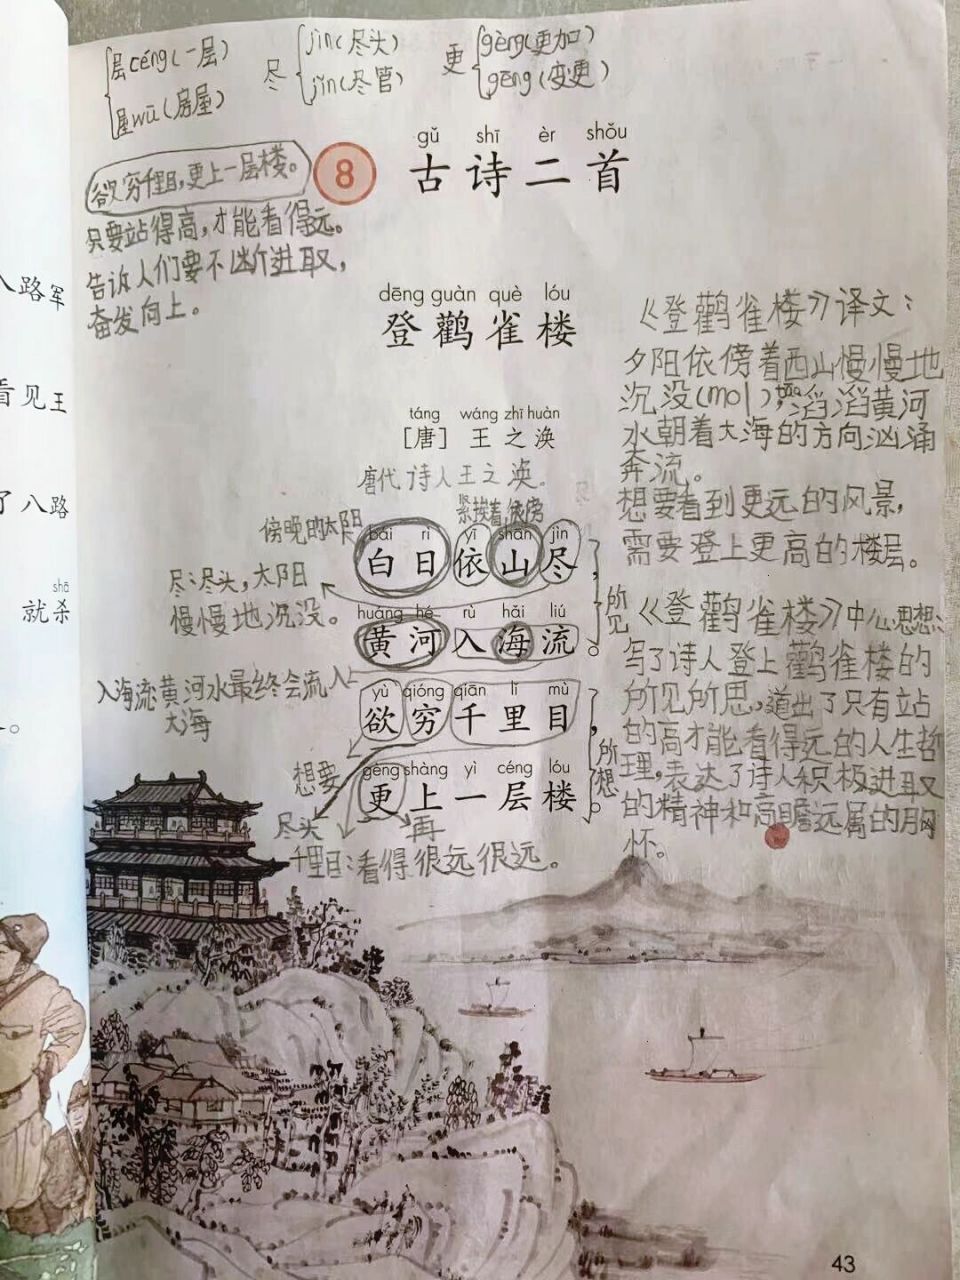 层céng(一层)
屋wū(房屋)
尽
jìn(尽头)
jǐn(尽管)
更
gèng(更加)
gēng(变更)
欲穷千里目,更上一层楼。
只要站得高,才能看得远。
告诉人们要不断进取,
奋发向上。
8
gǔ shī èr shǒu
古诗二首
dēng guàn què lóu
登鹳雀楼
táng wáng zhī huàn
[唐] 王之涣
唐代诗人王之涣.
紧挨着,依傍
傍晚的太阳
bái rì yī shān jìn
白日依山尽,
尽:尽头,太阳
慢慢地沉没。
huáng hé rù hǎi liú
黄河入海流。
所见
入海流:黄河水最终会流入
大海
yù qióng qiān lǐ mù
欲穷千里目,
想要
gèng shàng yì céng lóu
更上一层楼。
所想
尽头
再
千里目:看得很远很远。
《登鹳雀楼》译文:
夕阳依傍着西山慢慢地
沉没(mo),滔滔黄河
水朝着大海的方向汹涌
奔流。
想要看到更远的风景,
需要登上更高的楼层。
《登鹳雀楼》中心思想:
写了诗人登上鹳雀楼的
所见所思,道出了只有站
的高才能看得远的人生哲
理,表达了诗人积极进取
的精神和高瞻远属的胸
怀。
入路军
看见王
了八路
shā
就杀
43